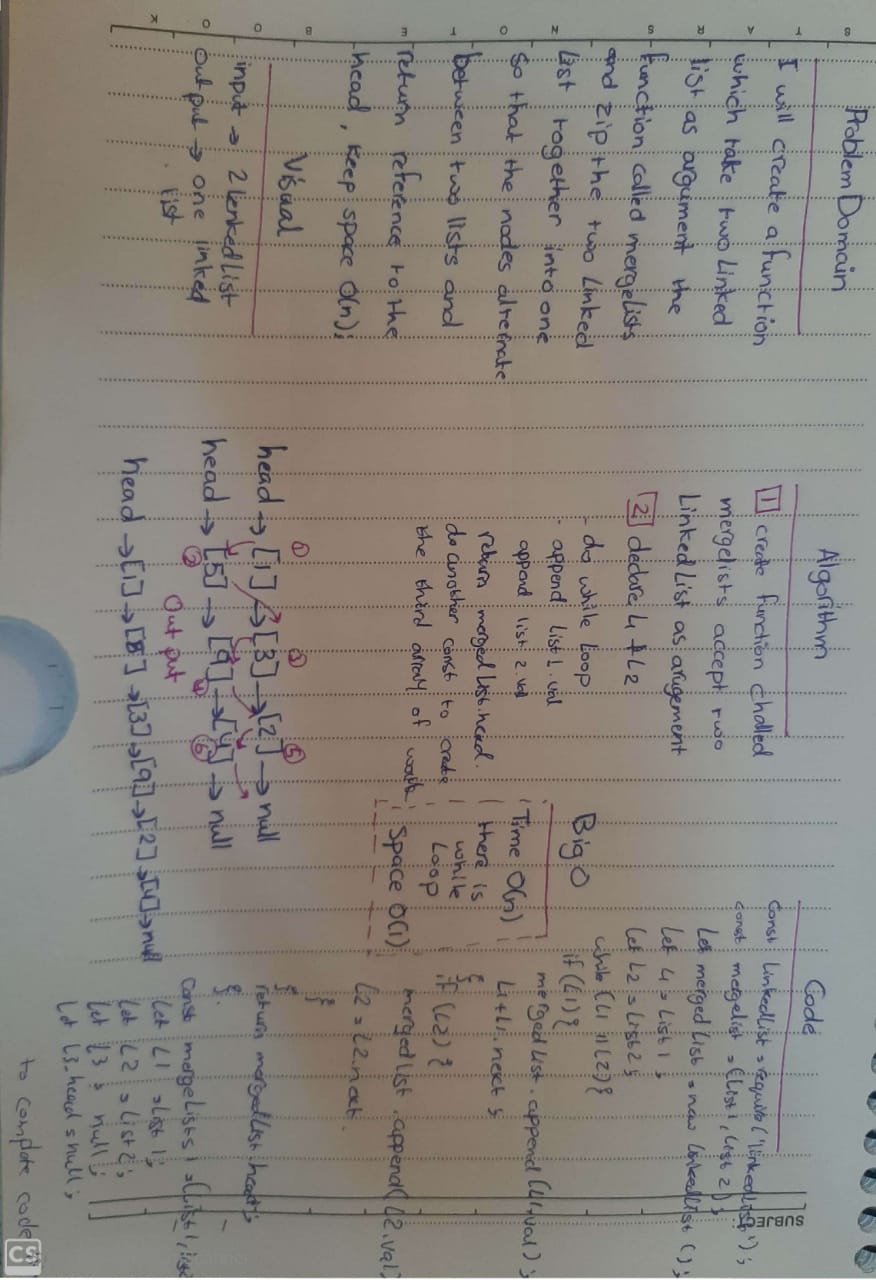 Problem Domain
I will create a function
which take two Linked
list as argument the
function called mergelists
and zip the two Linked
List together into one
so that the nodes alternate
between two lists and
return reference to the
head, keep space O(n);
Visual
input → 2 linked list
output → one linked
list
Algorithm
1 create function challed
mergelists accept two
Linked List as arugement
2 declare L1 + L2
- do while Loop
- append list 1. val
append list 2. val
return merged list.head.
do another const to create
the third array of
① ③ ⑤
head → [1] → [3] → [2] → null
head → [5] → [9] → [4] → null
② ④ ⑥
Out put
head → [1] → [8] → [3] → [9] → [2] → [4] → null
Big O
Time O(n)
there is
while
Loop
Space O(1)
Code
Const LinkedList = require('linkedList');
const mergelist = (List1, List 2);
Let merged List = new LinkedList ();
Let L1 = List 1;
Let L2 = List 2;
while (L1 || L2) {
if (L1) {
merged List. append (L1.val);
L1 + L1. next;
}
if (L2) {
merged List. append (L2.val)
L2 = L2. next.
}
}
return mergedList. head;
}.
Const mergeLists1 = (List 1, list
Let L1 = List 1;
Let L2 = List 2;
Let L3 = null;
Let L3. head = null;
to complete code
SUBJECT
S T A R S
N O T E
B O O K
CS